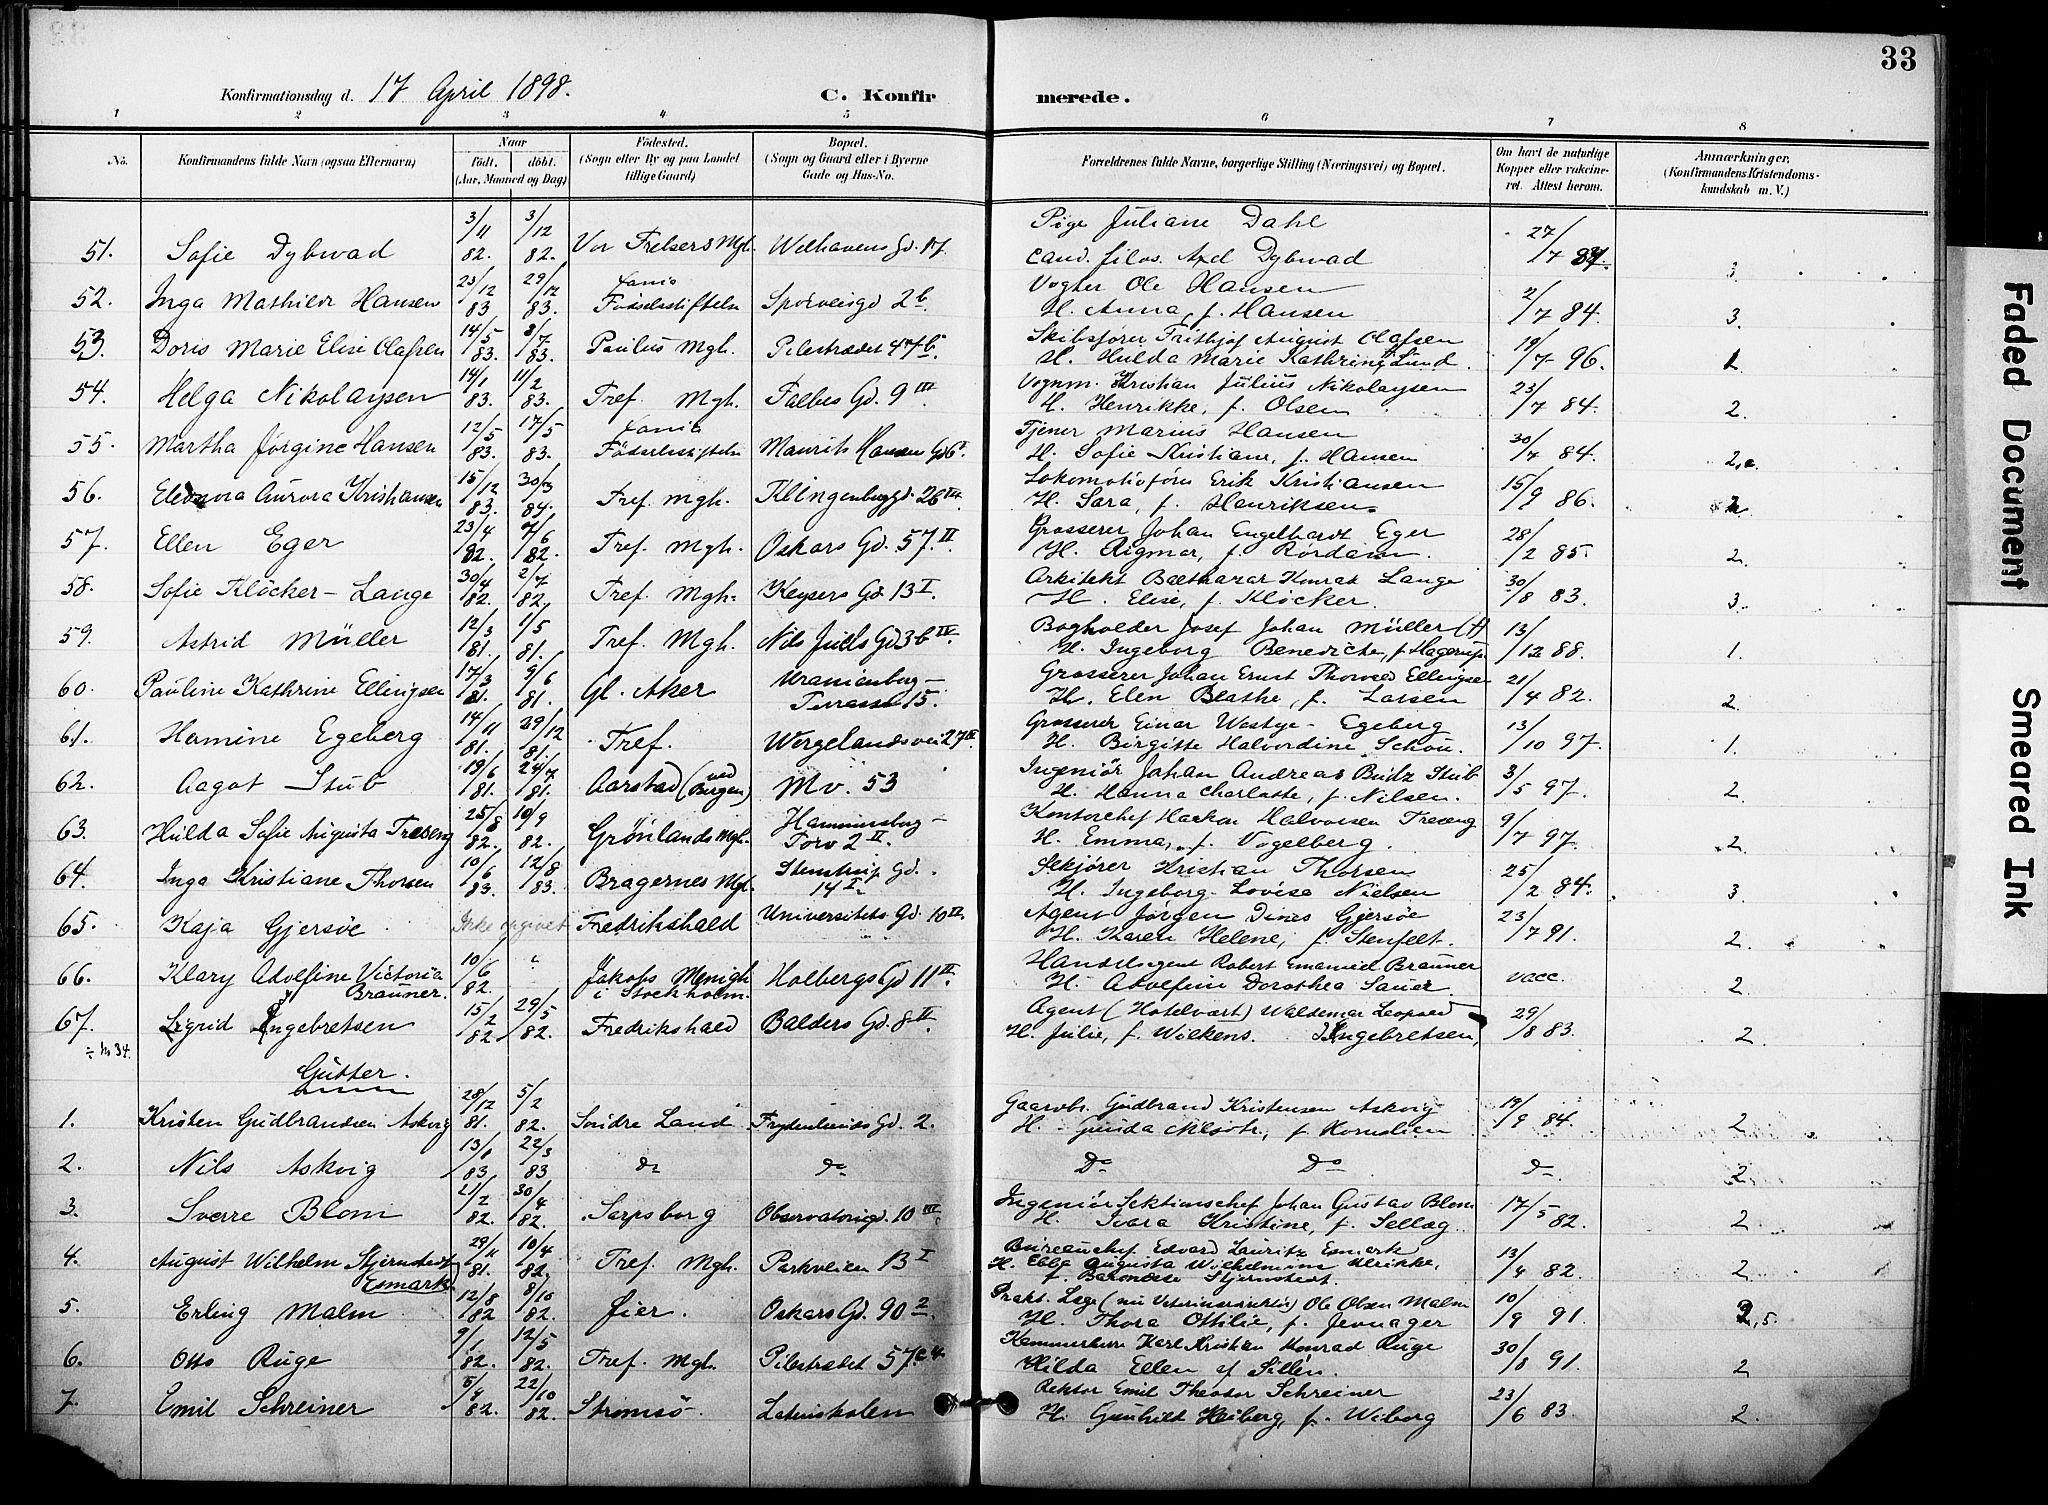 33
Konfirmationsdag d. 17 April 1898.
C. Konfirmerede.
1 2 3 4 5 6 7 8
No. Konfirmandens fulde Navn (ogsaa Efternavn) Naar født. døbt. (Aar, Maaned og Dag) Fødested. (Sogn eller By og paa Landet tillige Gaard) Bopæl. (Sogn og Gaard eller i Byerne Gade og Hus-No. Forældrenes fulde Navne, borgerlige Stilling (Næringsvei) og Bopæl. Om havt de naturlige Kopper eller vakcineret. Attest herom. Anmærkninger, (Konfirmandens Kristendomskundskab m. V.)
51. Sofie Dybwad 3/11 82. 3/12 82. Vor Frelsers Mgh. Welhavens Gd. 17. Pige Juliane Dahl
cand. filos. Axel Dybwad 27/7 3
52. Inga Mathilde Hansen 23/12 83 29/12 83. Fødselsstiftelsen Sporveisgd 2b. Vogter Ole Hansen
H. Anna, f. Hansen 2/7 84. 3.
53. Doris Marie Elise Olafsen 14/5 83. 8/7 83. Paulus Mgh. Pilestrædet 47b. Skibsfører Frithjof August Olafsen
H. Hulda Marie Kathrine Lund. 19/7 96. 1.
54. Helga Nikolaysen 14/1 83. 11/2 83. Tref. Mgh. Falbes Gd. 9 III. Vognm. Kristian Julius Nikolaysen
H. Henrikke, f. Olsen 23/7 84. 2.
55. Martha Jørgine Hansen 12/5 83. 17/5 83. Fødselsstiftelsen Maurits Hansen Gd 6 I. Tjener Marius Hansen
H. Sofie Kristiane, f. Hansen 30/7 84. 2
56. Eleonora Aurora Kristiansen 15/12 83. 30/3 84. Tref. Mgh. Klingenberggd. 2b III. Lokomotivfører Erik Kristiansen
H. Sara, f. Henriksen. 15/9 86. 2
57. Ellen Eger 23/4 82. 7/6 82. Tref. Mgh. Oskars Gd. 57. II. Grosserer Johan Engelhardt Eger
H. Rigmor, f. Rørdam. 28/2 85. 2.
58. Sofie Kløcker-Lange 30/4 82. 2/7 82. Tref. Mgh. Keysers Gd 13 I. Arkitekt Balthazar Konrad Lange
H. Elise, f. Kløcker. 30/8 83. 3.
59. Astrid Müller 12/3 81. 1/5 81. Tref. Mgh. Nils Juels Gd 3b IV. Bogholder Josef Johan Müller (†)
H. Ingeborg Benedicte, f. Hagerup. 13/12 88. 1.
60. Pauline Kathrine Ellingsen 17/3 81. 9/6 81. Gl. Aker Uranienborg-Terrasse 15. Grosserer Johan Ernst Thorvald Ellingsen
H. Elen Beathe, f. Larsen 21/4 82. 2.
61. Hermine Egeberg 14/11 81. 29/12 81. Tref. Wergelandsvei 27 II. Grosserer Einar Westye Egeberg
H. Birgitte Halvordine Schou. 13/10 97. 1.
62. Aagot Stub 19/6 81. 24/7 81. Aarstad (ved Bergen) Mv. 53 Ingeniør Johan Andreas Budz Stub
H. Hanna Charlotte, f. Nilsen. 3/5 97. 2.
63. Hulda Sofie Augusta Treseng 25/8 82. 10/9 82. Grønlands Mgh. Hammersborg-Torv 2 II. Kontorchef Haakon Halvorsen Treseng
H. Emma, f. Vogelberg. 9/7 97. 2.
64. Inga Kristiane Thorsen 10/6 83. 12/8 83. Bragernes Mgh. Stenstrup Gd. 14 I. Slækjører Kristian Thorsen
H. Ingeborg Lovise Nielsen 25/2 84. 3.
65. Kaja Gjersøe Ikke opgivet Fredrikshald Universitets Gd. 10 II. Agent Jørgen Dines Gjersøe
H. Karen Helene, f. Stenfelt. 23/7 91. 2.
66. Klary Adolfine Victoria Brauner. 10/6 82. Jakobs Menigh. i Stockholm. Holbergs Gd 11 II. Handelsagent Robert Emanuel Brauner
H. Adolfine Dorothea Sauer. vacc. 2.
67. Sigrid Ingebretsen 15/2 82. 29/5 82. Fredrikshald Balders Gd. 8 II. Agent (Hotelvært) Waldemar Leopold Ingebretsen,
H. Julie, f. Wilkens. 29/8 83. 2.
÷ No 34.
Gutter.
1. Kristen Gudbrandsen Askvig 28/12 81. 5/2 82. Søndre Land Frydenlunds Gd. 2. Gaardbr. Gudbrand Kristensen Askvig
H. Gunda f. Kornelsen 19/9 84. 2.
2. Nils Askvig 13/1 83 22/3 83 do do Do Do do 2
3. Sverre Blom 21/2 82. 30/4 82. Sarpsborg Observatoriegd. 10 III. Ingeniør Sektionschef Johan Gustav Blom
H. Kristine, f. Selleg 17/5 82. 2.
4. August Wilhelm Stjernstedt Esmark 29/11 81. 10/4 82. Tref. Mgh. Parkveien 13 I Bureauchef Edvard Lauritz Esmark
H. Ebba Augusta Wilhelmine Ulrikke, f. Baronesse Stjernstedt. 13/4 82. 2
5. Erling Malm 12/8 82 8/10 82. Øier. Oskars Gd. 90 2 Prakt. Læge (nu Veterinærdirektør) Ole Olsen Malm
H. Thora Ottilie, f. Jevnager 10/9 91. 2,5.
6. Otto Ruge 9/1 82. 12/5 82. Tref. Mgh. Pilestrædet 57 Kammerherre Karl Kristian Konrad Ruge
Hilda Ellen af Sillén. 30/8 91. 2
7. Emil Schreiner 5/9 82. 22/10 82. Strømsø. Latinskolen Rektor Emil Theodor Schreiner
H. Gunhild Heiberg, f. Wiborg 23/6 83. 2.
Faded Document
Smeared Ink